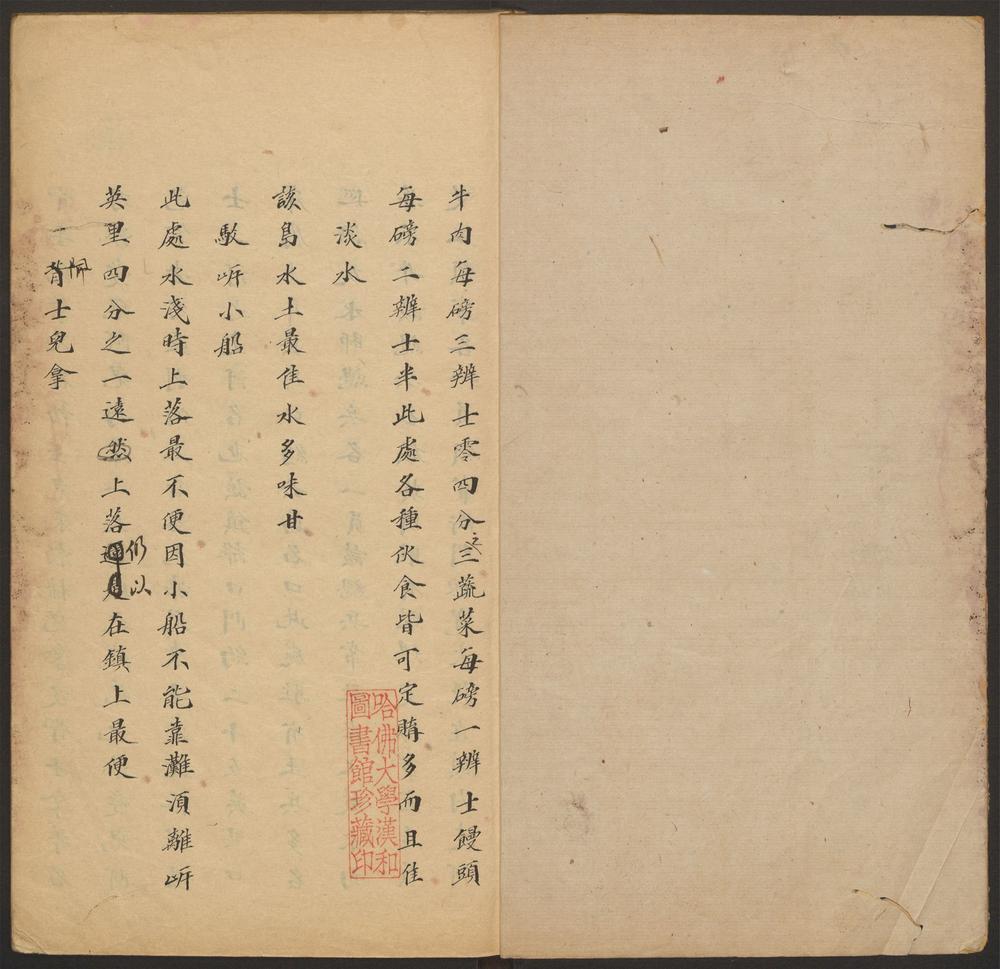 牛肉每磅三辨士零四分之三蔬菜每磅一辨士饅頭
每磅二辨士半此處各種伙食皆可定購多而且佳
淡水
該島水土最佳水多味甘
駁岍小船
此處水淺時上落最不便因小船不能靠灘湏離岍
英里四分之一遠然上落仍以在鎮上最便
一背士兒拿
哈佛大學漢和
圖書館珍藏印